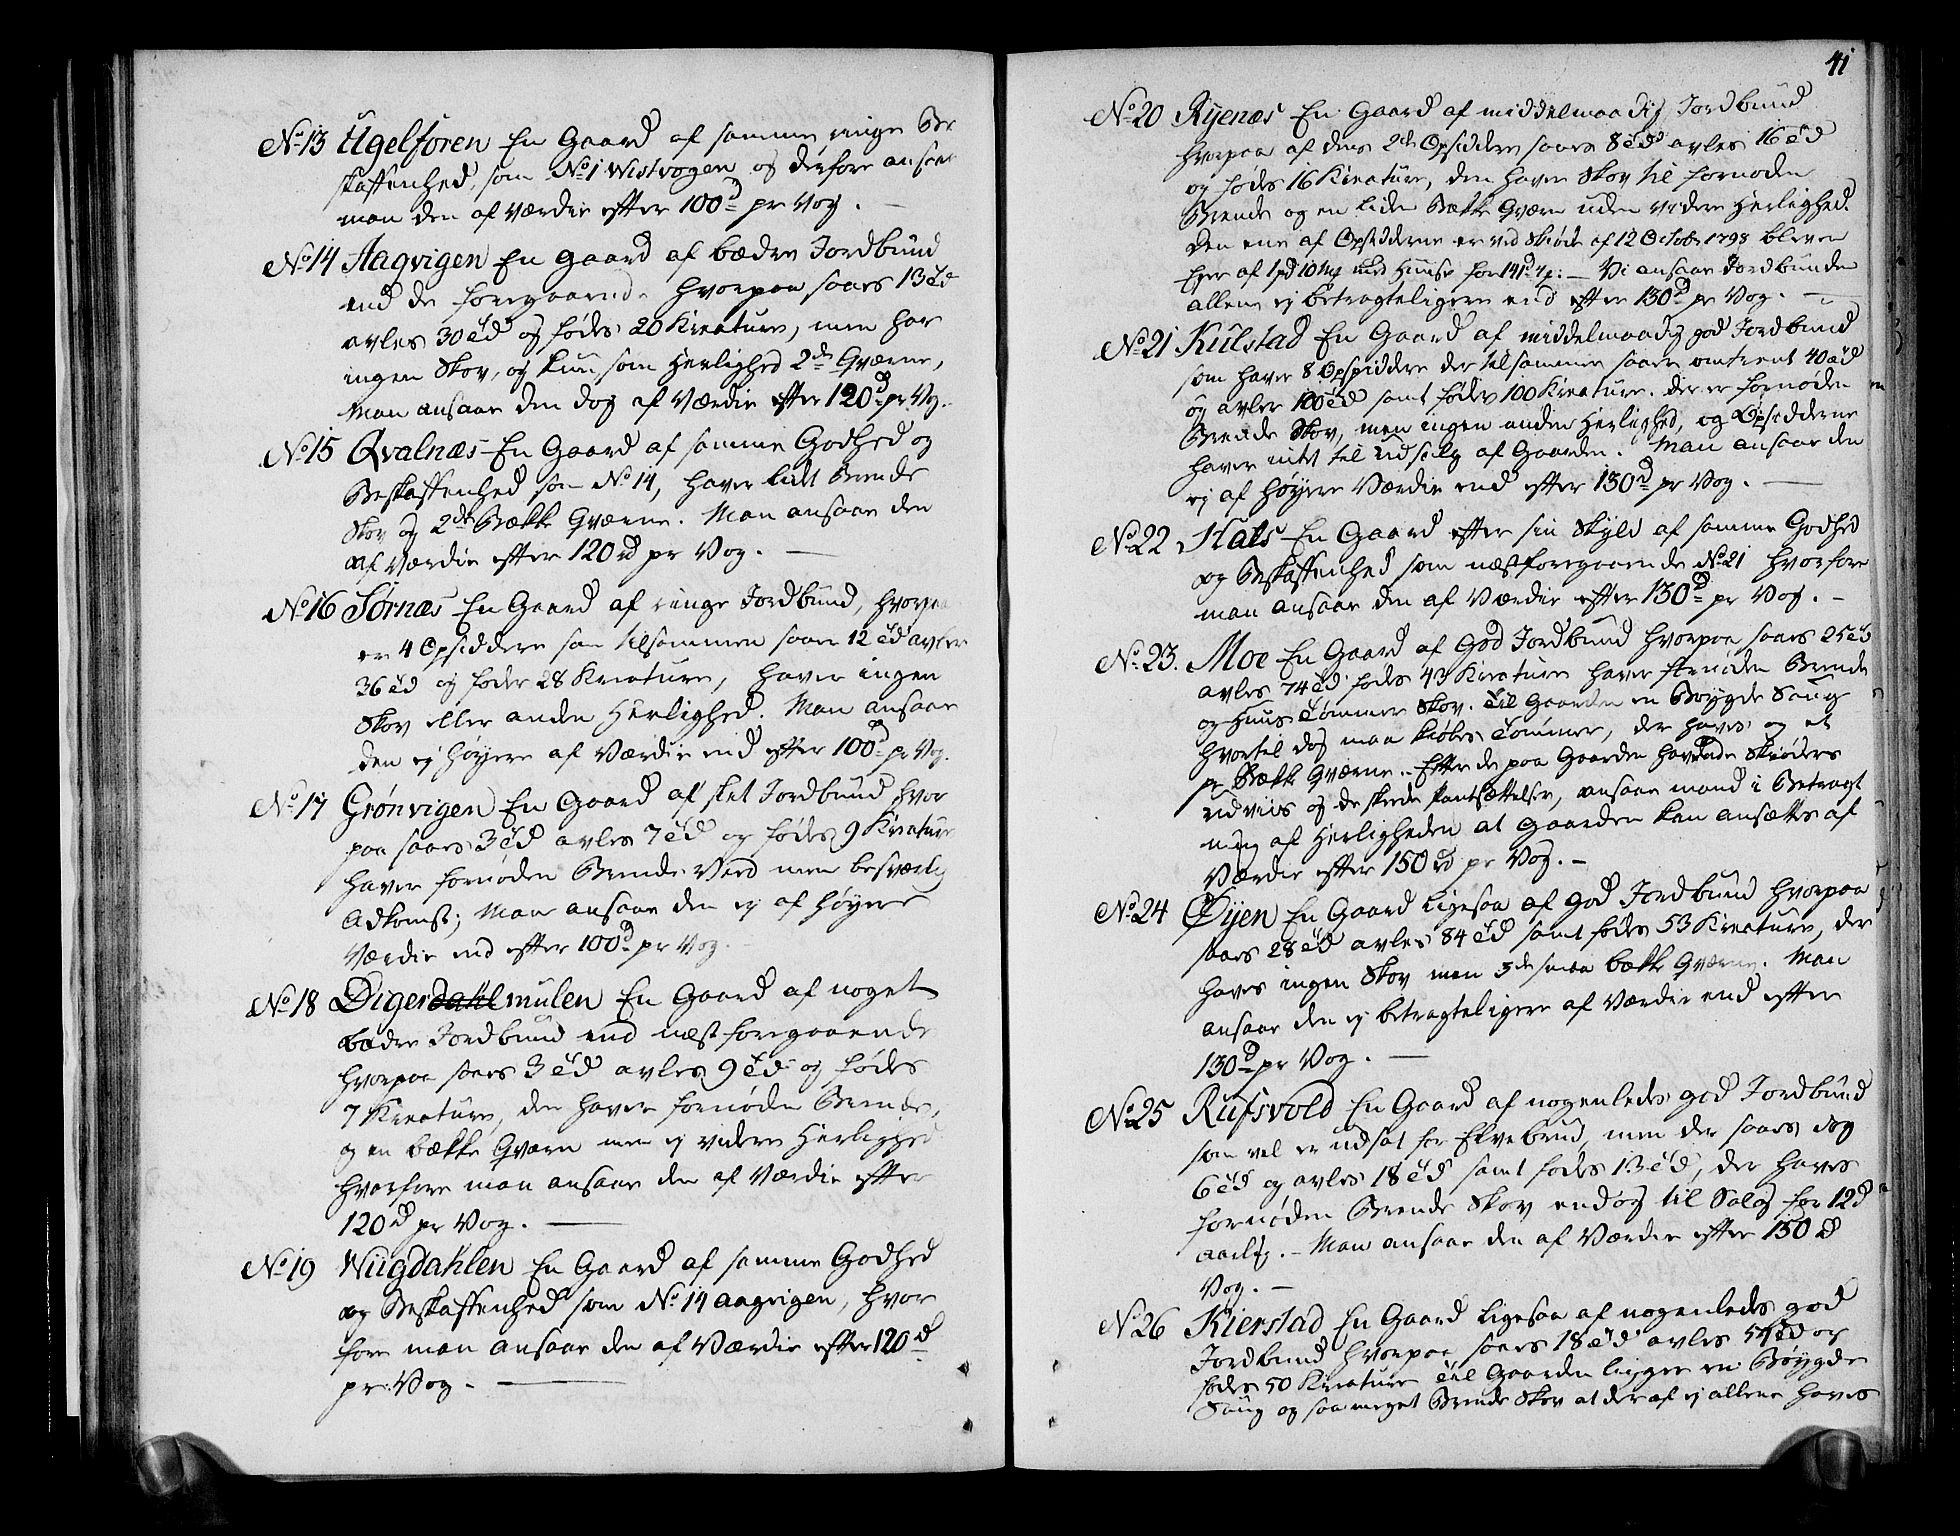 No 13 Ugelforen En Gaard af samme ringe Be
skaffenhed, som No 1 Wistvogen og derfore ansaae
man den af Værdie efter 100d pr Vog. —
No 14 Aagvigen En Gaard af bædre Jordbund
end de foregaaende hvorpaa saaes 13 Td
avles 30 Td og fødes 20 Kreature, men har
ingen Skov, og kun som Herlighed 2de Qværne,
Man ansaae den dog af Værdie efter 120d pr Vog.
No 15 Qvalnæs En Gaard af samme Godhed og
Beskaffenhed som No 14, haver lidt Brende
Skov og 2de Bække Qværne. Man ansaae den
af Værdie efter 120 rd pr Vog. —
No 16 Sørnæs En Gaard af ringe Jordbund, hvorpaa
er 4 Opsiddere som tilsammen saaer 12 Td avler
36 Td og føder 28 Kreature, haver ingen
Skov eller anden Herlighed. Man ansaae
den ej høyere af Værdie end efter 100d pr Vog.
No 17 Grønvigen En Gaard af slet Jordbund hvor
paa saaes 3 Td avles 7 Td og fødes 9 Kreature
haver fornøden Brende Ved men besværlig
Adkomst; Man ansaae den ej af høyere
Værdie end efter 100d pr Vog.
No 18 Digerdahl mulen En Gaard af noget
bædre Jordbund end næstforegaaende
hvorpaa saaes 3 Td avles 9 Td og fødes
7 Kreature, den haver fornøden Brende,
og en bække Qværn men ej videre Herlighed
hvorfore man ansaae den af Værdie efter
120 d pr Vog. —
No 19 Wiigdahlen En Gaard af samme Godhed
og Beskaffenhed som No 14 Aagvigen, hvor
fore man ansaae den af Værdie efter 120 d
pr Vog. —
41
No 20 Ryenæs En Gaard af middelmaadig Jordbund
hvorpaa af dens 2de Opsiddere saaes 8 Td avles 16 Td
og fødes 16 Kreature, den haver Skov til fornøden
Brende og en liden Bække Qværn uden videre Herlighed.
Den ene af Opsidderne er ved Skiøde af 12 Octobr 1798 bleven
Ejer af 1 pd 10 mk med Huuse for 141d — Vi ansaae Jordbunden
allene ej betragteligere end efter 130d pr Vog. —
No 21 Kulstad En Gaard af middelmaadig god Jordbund
som haver 8 Opsiddere der tilsammen saaer omtrent 40 Td
og avler 100 Td samt føder 100 Kreature. der er fornøden
Brende Skov, men ingen anden Herlighed, og Opsidderne
haver intet til udsælg af Gaarden. Man ansaae den
ej af høyere Værdie end efter 130d pr Vog. —
No 22 Hals En Gaard efter sin Skyld af samme Godhed
og Beskaffenhed som næstforegaaende No 21 hvorfore
man ansaae den af Værdie efter 130d pr Vog. —
No 23. Moe En Gaard af God Jordbund hvorpaa saaes 25 Td
avles 74 Td fødes 43 Kreature haver fornøden Brende
og Huus Tømmer Skov. Til Gaarden en Bøygde Saug
hvortil dog maa kiøbes Tømmer, der haves og et
pr Bække Qværne. Efter de paa Gaarden havende Skiøders
udviis og de skeede Pantsættelser, ansaae mand i Betragt
ning af Herligheden at Gaarden kan ansættes af
Værdie efter 150 rd pr Vog. —
No 24 Øyen En Gaard ligesaa af god Jordbund hvorpaa
saaes 28 Td avles 84 Td samt fødes 53 Kreature, der
haves ingen Skov men 3de smaa bække Qværne. Man
ansaae den ej betragteligere af Værdie end efter
130d pr Vog. —
No 25 Rufsvold En Gaard af nogenledes god Jordbund
som vel er udsat for Elvebrud, men der saaes dog
6 Td og avles 18 Td samt fødes 13 Td, der haves
fornøden Brende Skov endog til Salg for 12d
aarlig. — Man ansaae den af Værdie efter 150 d
Vog. —
No 26 Kierstad En Gaard ligesaa af nogenledes god
Jordbund hvorpaa saaes 18 Td avles 54 Td og
fødes 50 Kreature Til Gaarden ligger en Bøygde
Saug og saa meget Brende Skov at deraf ej allene haves